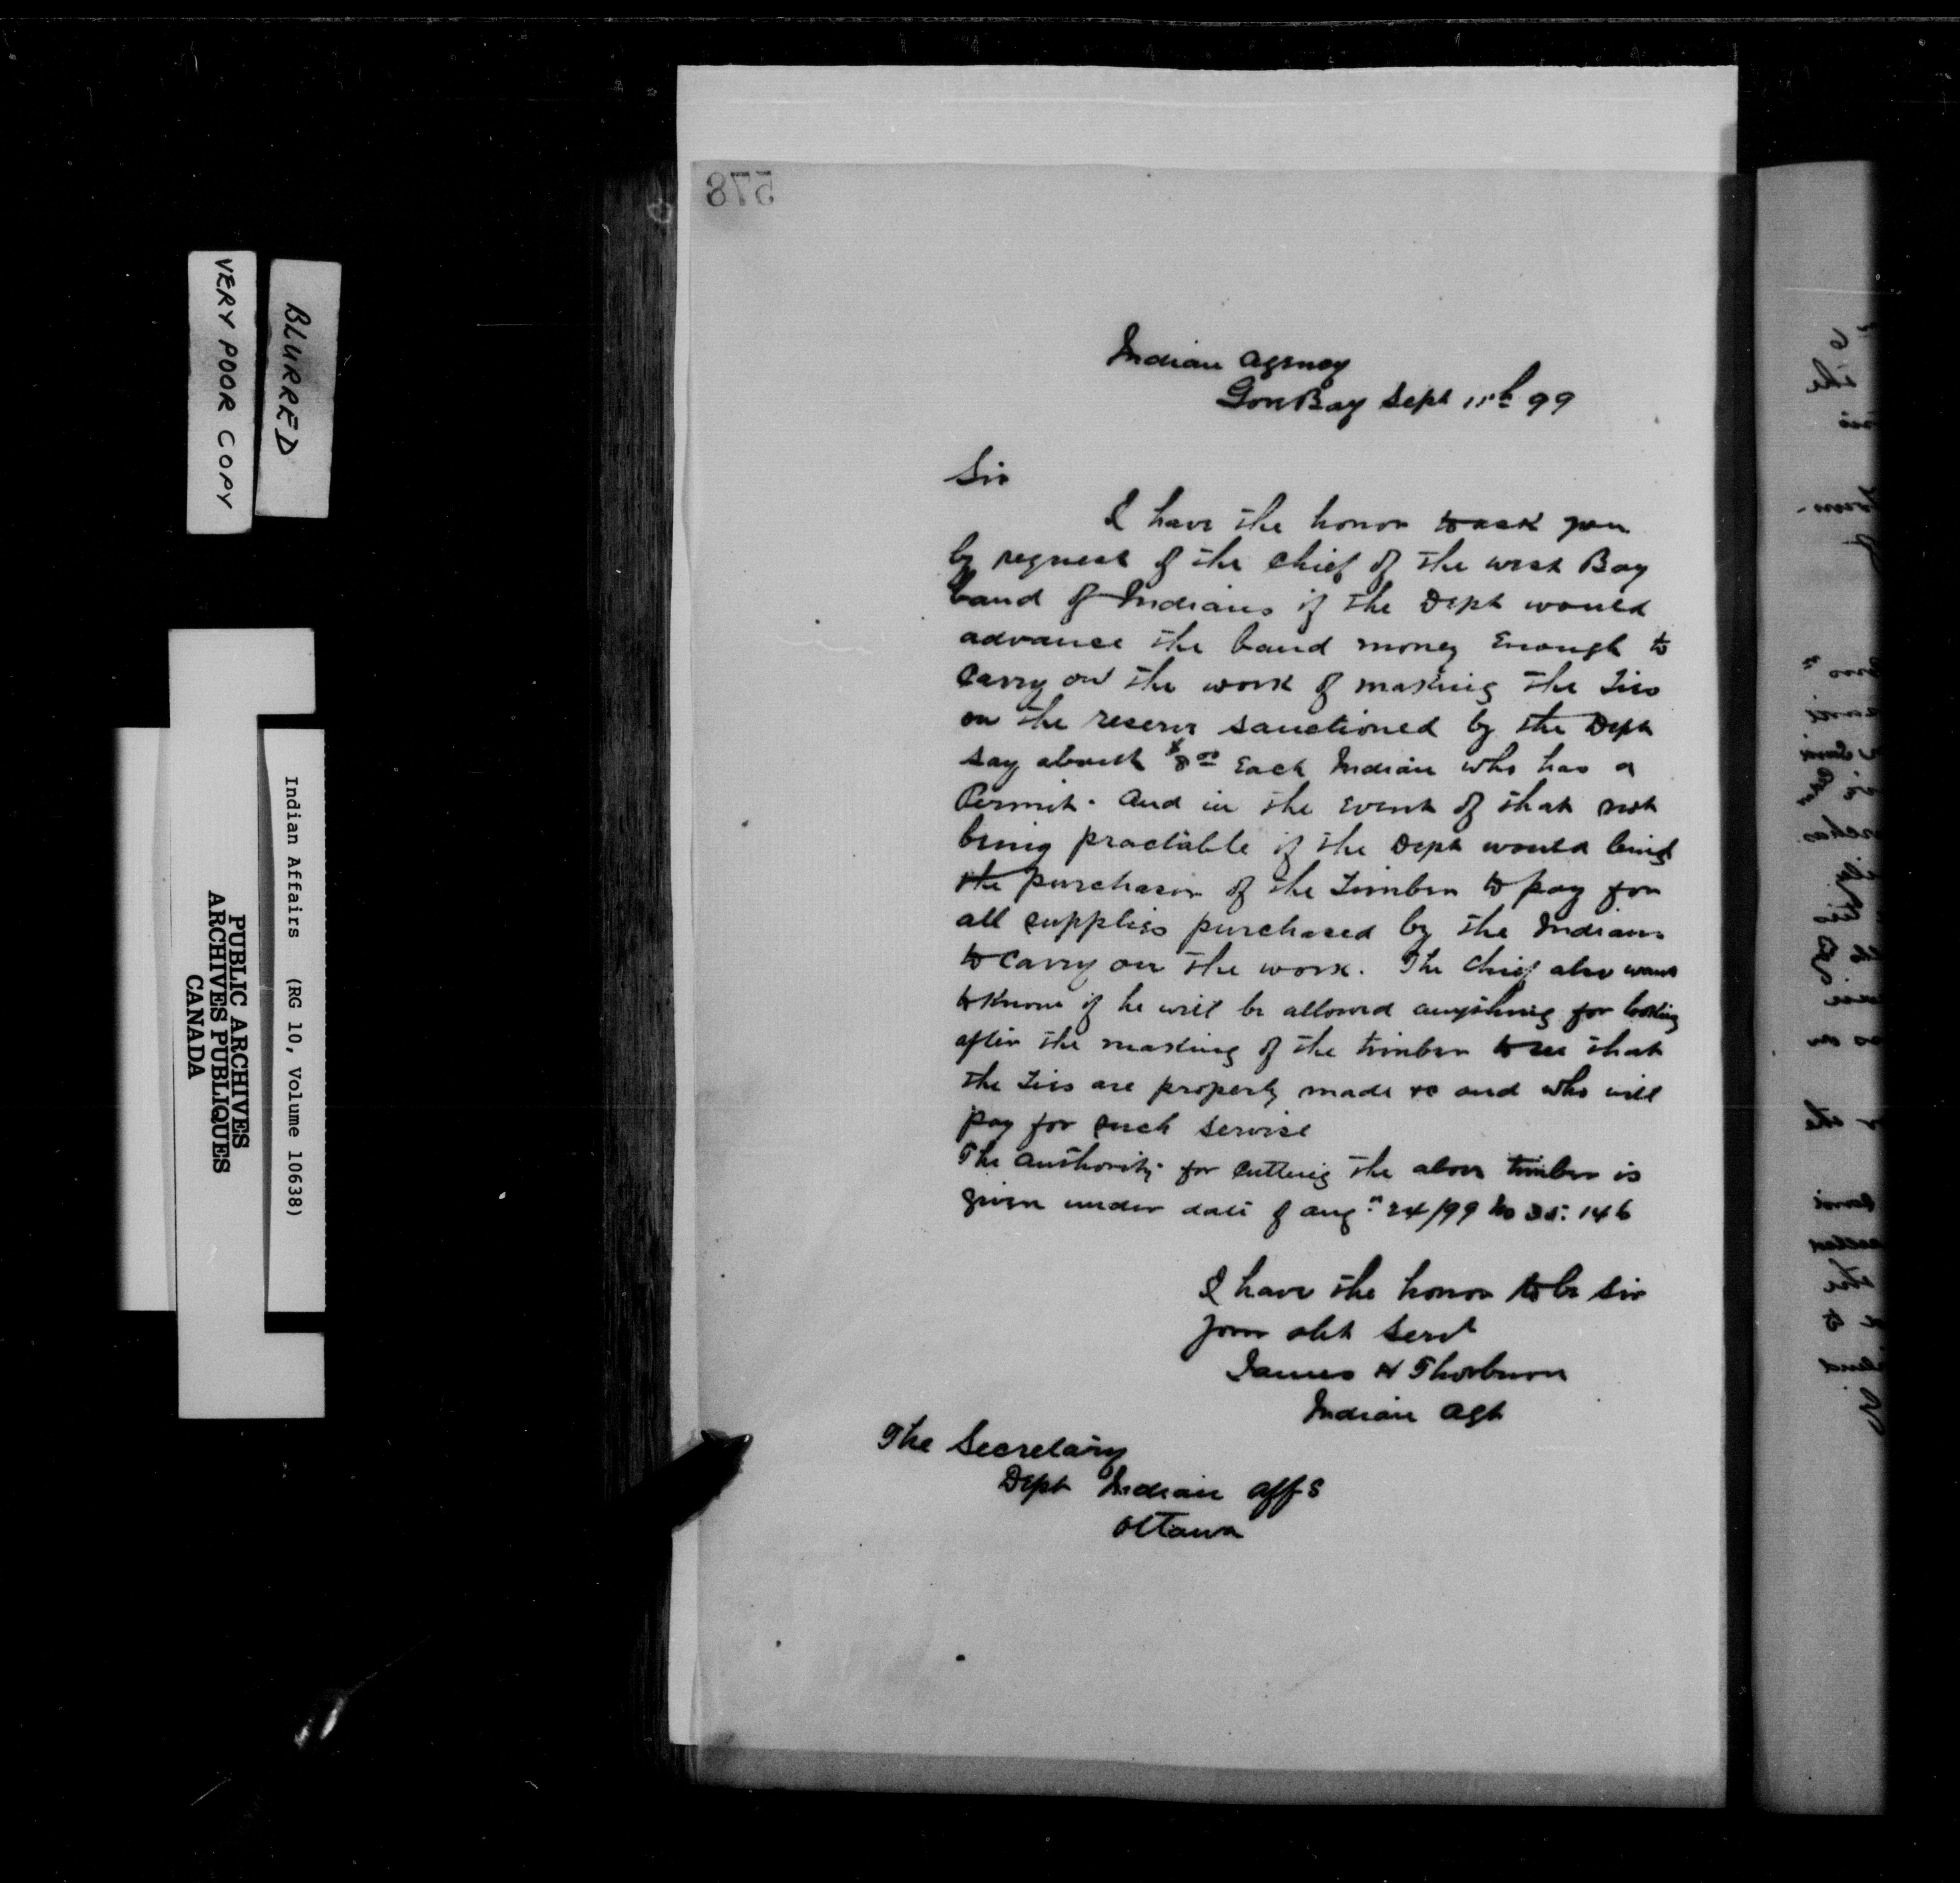 578
Indian Agency
Gore Bay Sept 11th 99
Sir
I have the honor to ask you
by request of the Chief of the West Bay
band of Indians if the Dept would
advance the band money Enough to
Carry on the work of making the Ties
on the reserve sanctioned by the Dept
say about $8.00 Each Indian who has a
Permit. And in the Event of that not
being practable if the Dept would bind
the purchaser of the Timber to pay for
all supplies purchased by the Indians
to Carry on the work. The Chief also wants
to Know if he will be allowed anything for looking
after the making of the timber to see that
the Ties are properly made &c and who will
pay for such Servise
The Authority for Cutting the above timber is
given under date of Aug 24/99 No 146
I have the honor to be Sir
your obt Servt
James H Thorburn
Indian Agt
The Secretary
Dept Indian Affs
Ottawa
VERY POOR COPY
BLURRED
Indian Affairs (RG 10, Volume 10638)
PUBLIC ARCHIVES
ARCHIVES PUBLIQUES
CANADA